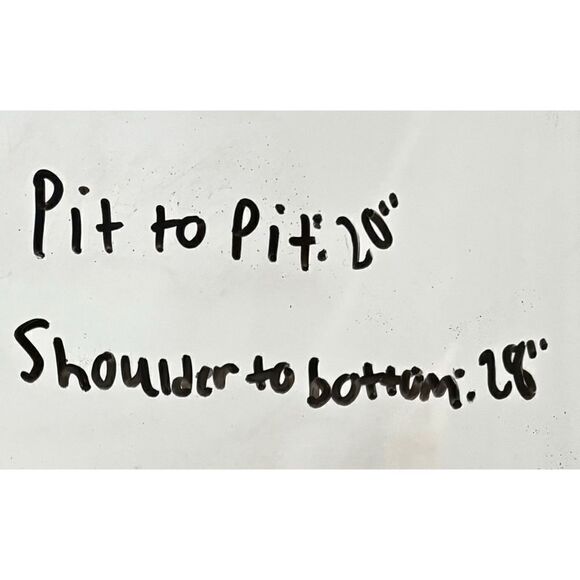 Pit to Pit: 20"
Shoulder to bottom: 28"